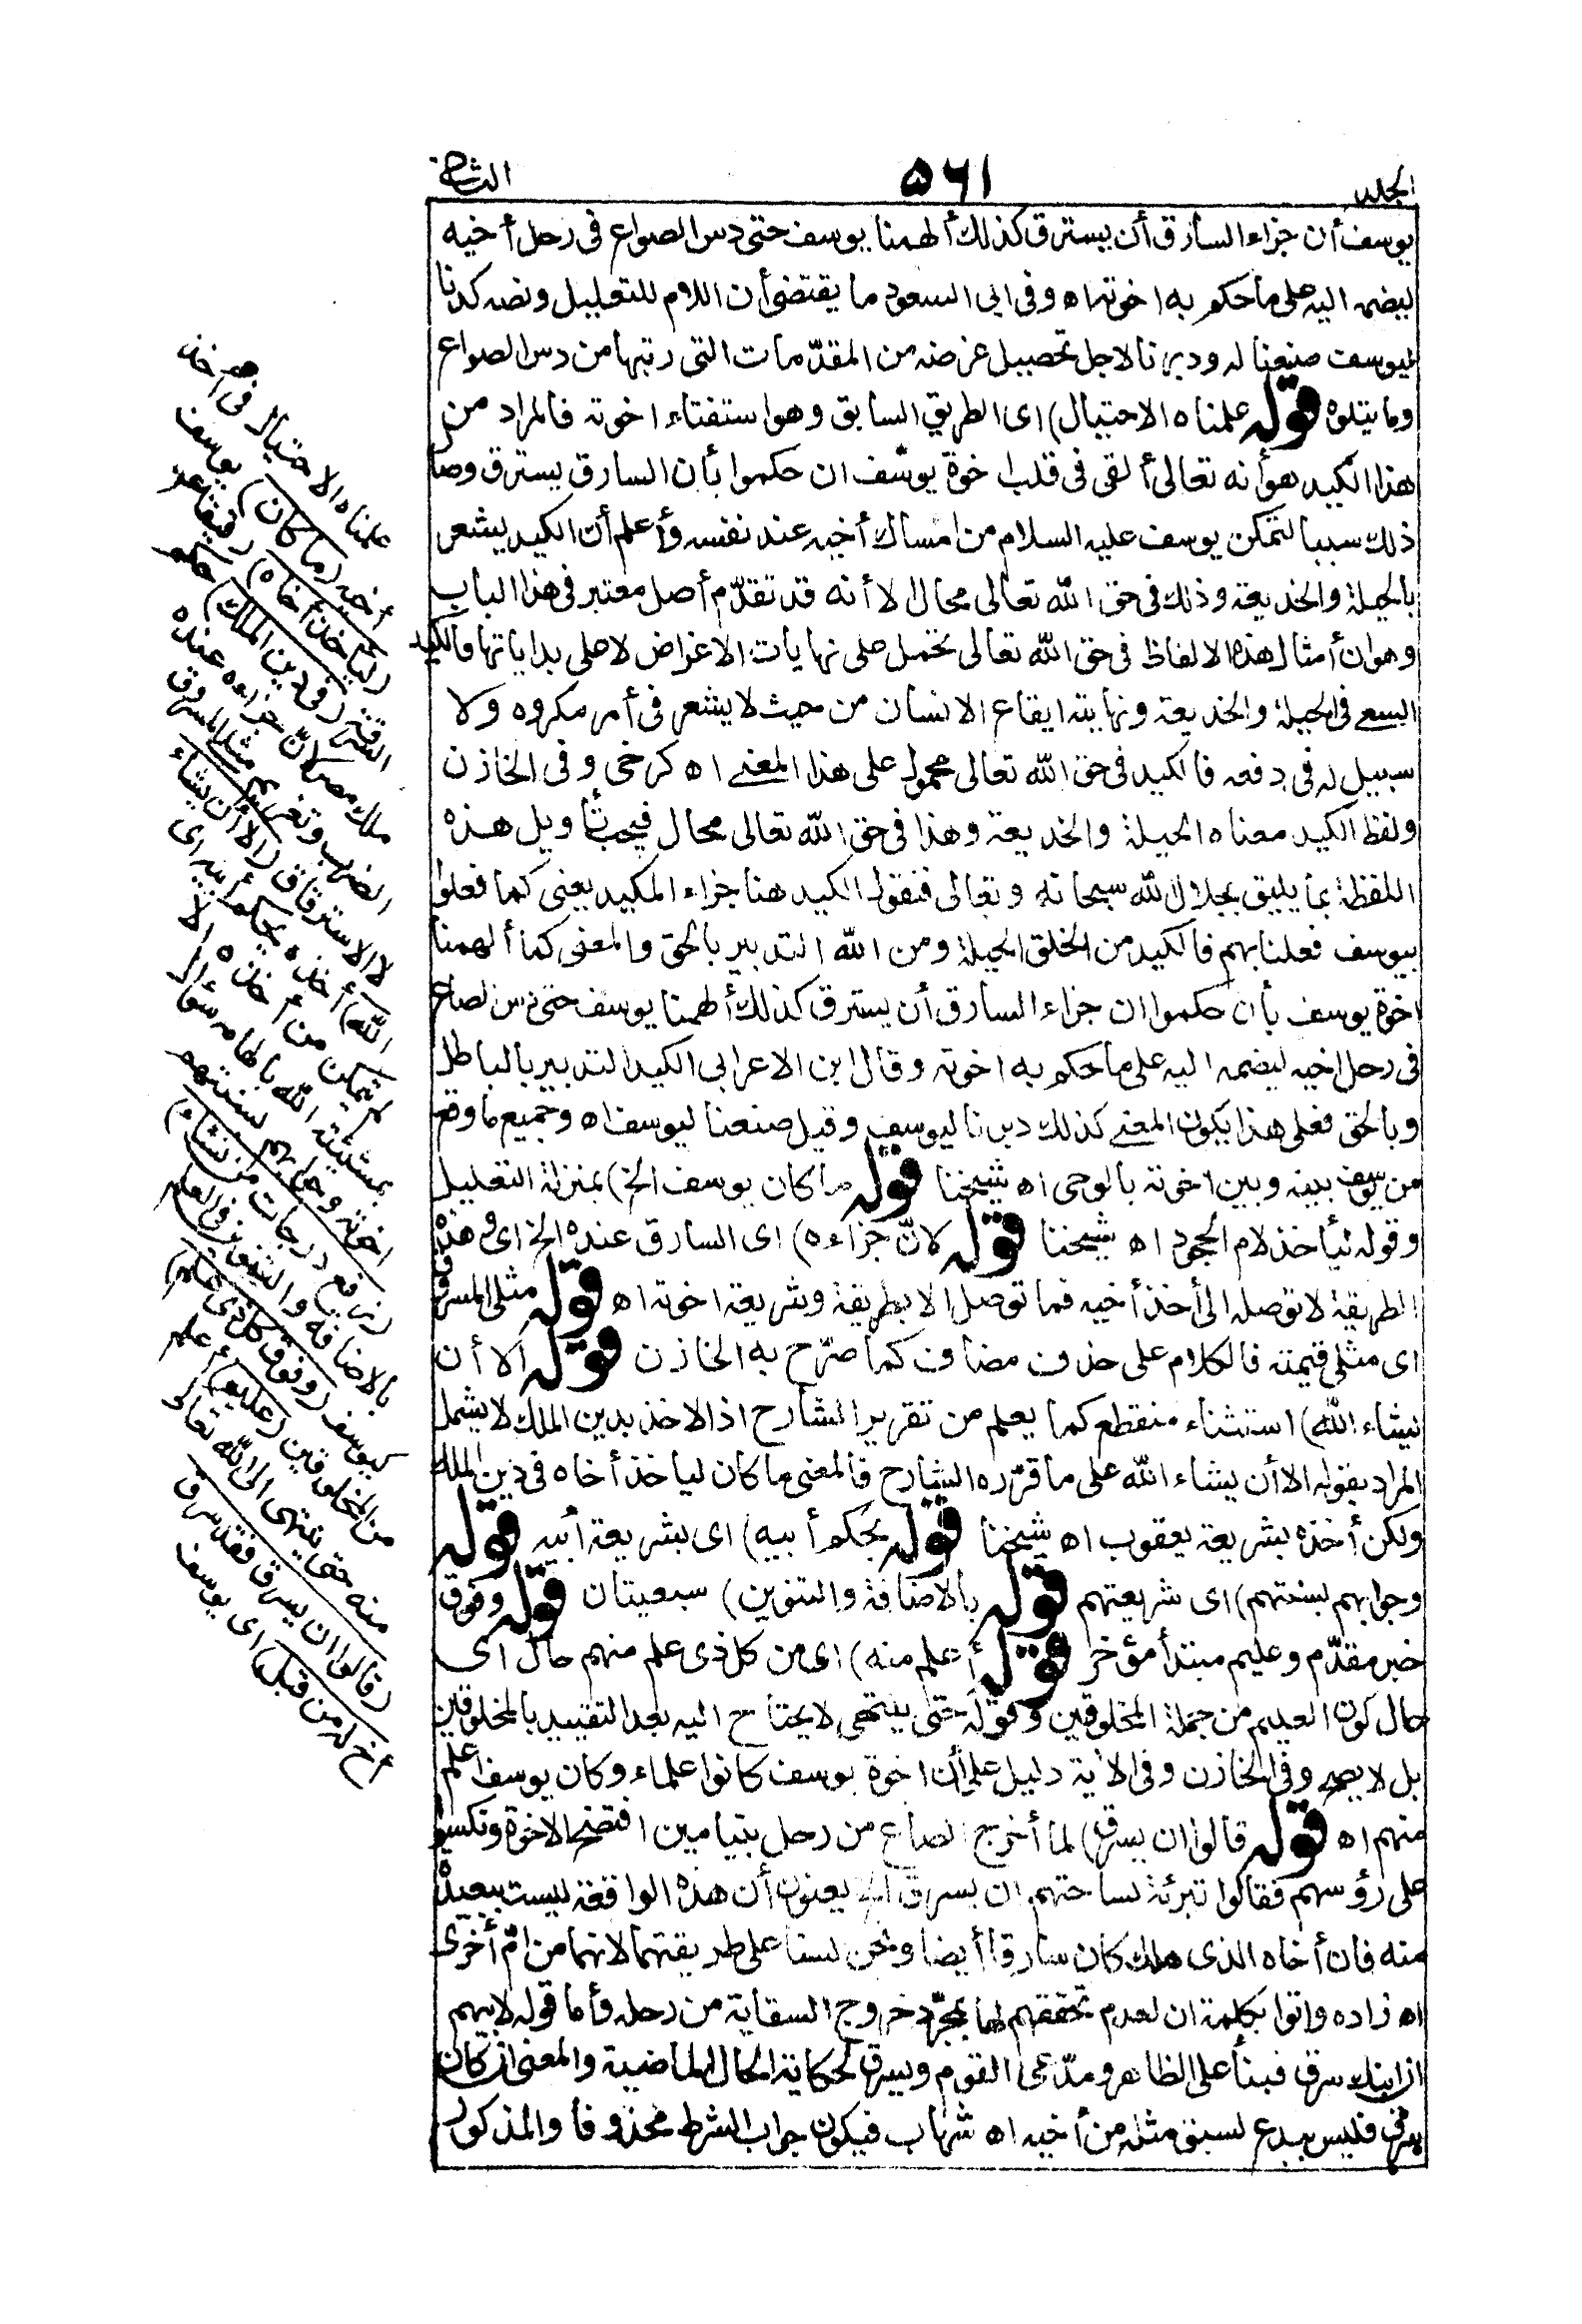 الجلد
٥٦١
الثانى
يوسف أن جزاء السارق أن يسترق كذلك ألهمنا يوسف حتى دس الصواع فى رحل أخيه
ليضمه اليه على ما حكم به اخوته اه وفى ابى السعود ما يقتضى أن اللام للتعليل ونصه كدنا
ليوسف صنعنا له ودبرنا لاجل تحصيل غرضه من المقدّمات التى رتبها من دس الصواع
وما يتلوه قوله علمناه الاحتيال) اى الطريق السابق وهو استفتاء اخوته فالمراد من
هذا الكيد هو أنه تعالى ألقى فى قلب اخوة يوسف ان حكموا بأن السارق يسترق وصا
ذلك سببا لتمكن يوسف عليه السلام من امساك أخيه عند نفسه وأعلم أن الكيد يشعر
بالحيلة والخديعة وذلك فى حق الله تعالى محال لا أنه قد تقدّم أصل معتبر فى هذا الباب
وهو ان أمثال هذه الالفاظ فى حق الله تعالى تحمل على نهايات الاغراض لا على بداياتها فالكيد
السعى فى الحيلة والخديعة ونهايته ايقاع الانسان من حيث لا يشعر فى أمر مكروه ولا
سبيل له فى دفعه فالكيد فى حق الله تعالى محمول على هذا المعنى اه كرخى وفى الخازن
ولفظ الكيد معناه الحيلة والخديعة وهذا فى حق الله تعالى محال فيجب تأويل هذه
اللفظة بما يليق بجلال الله سبحانه وتعالى فنقول الكيد هنا جزاء المكيد يعنى كما فعلوا
بيوسف فعلنا بهم فالكيد من الخلق الحيلة ومن الله التدبير بالحق والمعنى كما ألهمنا
اخوة يوسف بأن حكموا ان جزاء السارق أن يسترق كذلك ألهمنا يوسف حتى دس الصاع
فى رحل اخيه ليضمه اليه على ما حكم به اخوته وقال ابن الاعرابى الكيد التدبير بالباطل
وبالحق فعلى هذا يكون المعنى كذلك دبرنا ليوسف وقيل صنعنا ليوسف اه وجميع ما وقع
من يوسف بينه وبين اخوته بالوحى اه شيخنا قوله ما كان يوسف الخ) بمنزلة التعليل
وقوله ليأخذ لام الجحود اه شيخنا قوله لانّ جزاءه) اى السارق عنده الخ اى وهذه
الطريقة لا توصله الى أخذ أخيه فما توصل الا بطريقة وشريعة اخوته اه قوله مثلى المسروق
اى مثلى قيمته فالكلام على حذف مضاف كما صرّح به الخازن قوله الا أن
يشاء الله) استثناء منقطع كما يعلم من تقرير الشارح اذ الاخذ بدين الملك لا يشمل
المراد بقوله الا أن يشاء الله على ما قرّره الشارح فالمعنى ما كان ليأخذ أخاه فى دين الملك
ولكن أخذه بشريعة يعقوب اه شيخنا قوله بحكم أبيه) اى بشريعة أبيه قوله
وجوابهم بسنتهم) اى شريعتهم قوله بالاضافة والتنوين) سبعيتان قوله وفوق
خبر مقدّم وعليم مبتدأ مؤخر قوله أعلم منه) اى من كل ذى علم منهم حال اى
حال كون العليم من جملة المخلوقين وقوله حتى ينتهى لا يحتاج اليه بعد التقييد بالمخلوقين
بل لا يصح وفى الخازن وفى الآية دليل على أن اخوة يوسف كانوا علماء وكان يوسف أعلم
منهم اه قوله قالوا ان يسرق) لما أخرج الصاع من رحل بنيامين افتضح الاخوة ونكسوا
على رؤسهم فقالوا تبرئة لساحتهم ان يسرق الخ يعنون أن هذه الواقعة ليست ببعيدة
منه فان أخاه الذى هلك كان سارقا أيضا ونحن لسنا على طريقتهما لانهما من امّ أخرى
اه زاده واتوا بكلمة ان لعدم تحققهم لها بمجرّد خروج السقاية من رحله وأما قوله لابيهم
ان ابنك سرق فبنأ على الظاهر ومدّعى القوم ويسرق لحكاية الحال الماضية والمعنى ان كان
سرق فليس ببدع لسبق مثله من أخيه اه شهاب فيكون جواب الشرط محذوفا والمذكور
علمناه الاحتيال فى أخذ
أخيه (ما كان) يوسف
(ليأخذ أخاه) رقيقا عن
السرقة (فى دين الملك) حكم
ملك مصر لانّ جزاءه عنده
الضرب وتغريم مثلى المسروق
لا الاسترقاق (الا أن يشاء
الله) أخذه بحكم أبيه اى
لم يتمكن من أخذه الا
بمشيئة الله بالهامه سؤال
اخوته وجوابهم بسنتهم
(نرفع درجات من نشاء)
بالاضافة والتنوين فى العلم
كيوسف (وفوق كل ذى علم)
من المخلوقين (عليم) أعلم
منه حتى ينتهى الى الله تعالى
(قالوا ان يسرق فقد سرق
أخ له من قبل) اى يوسف